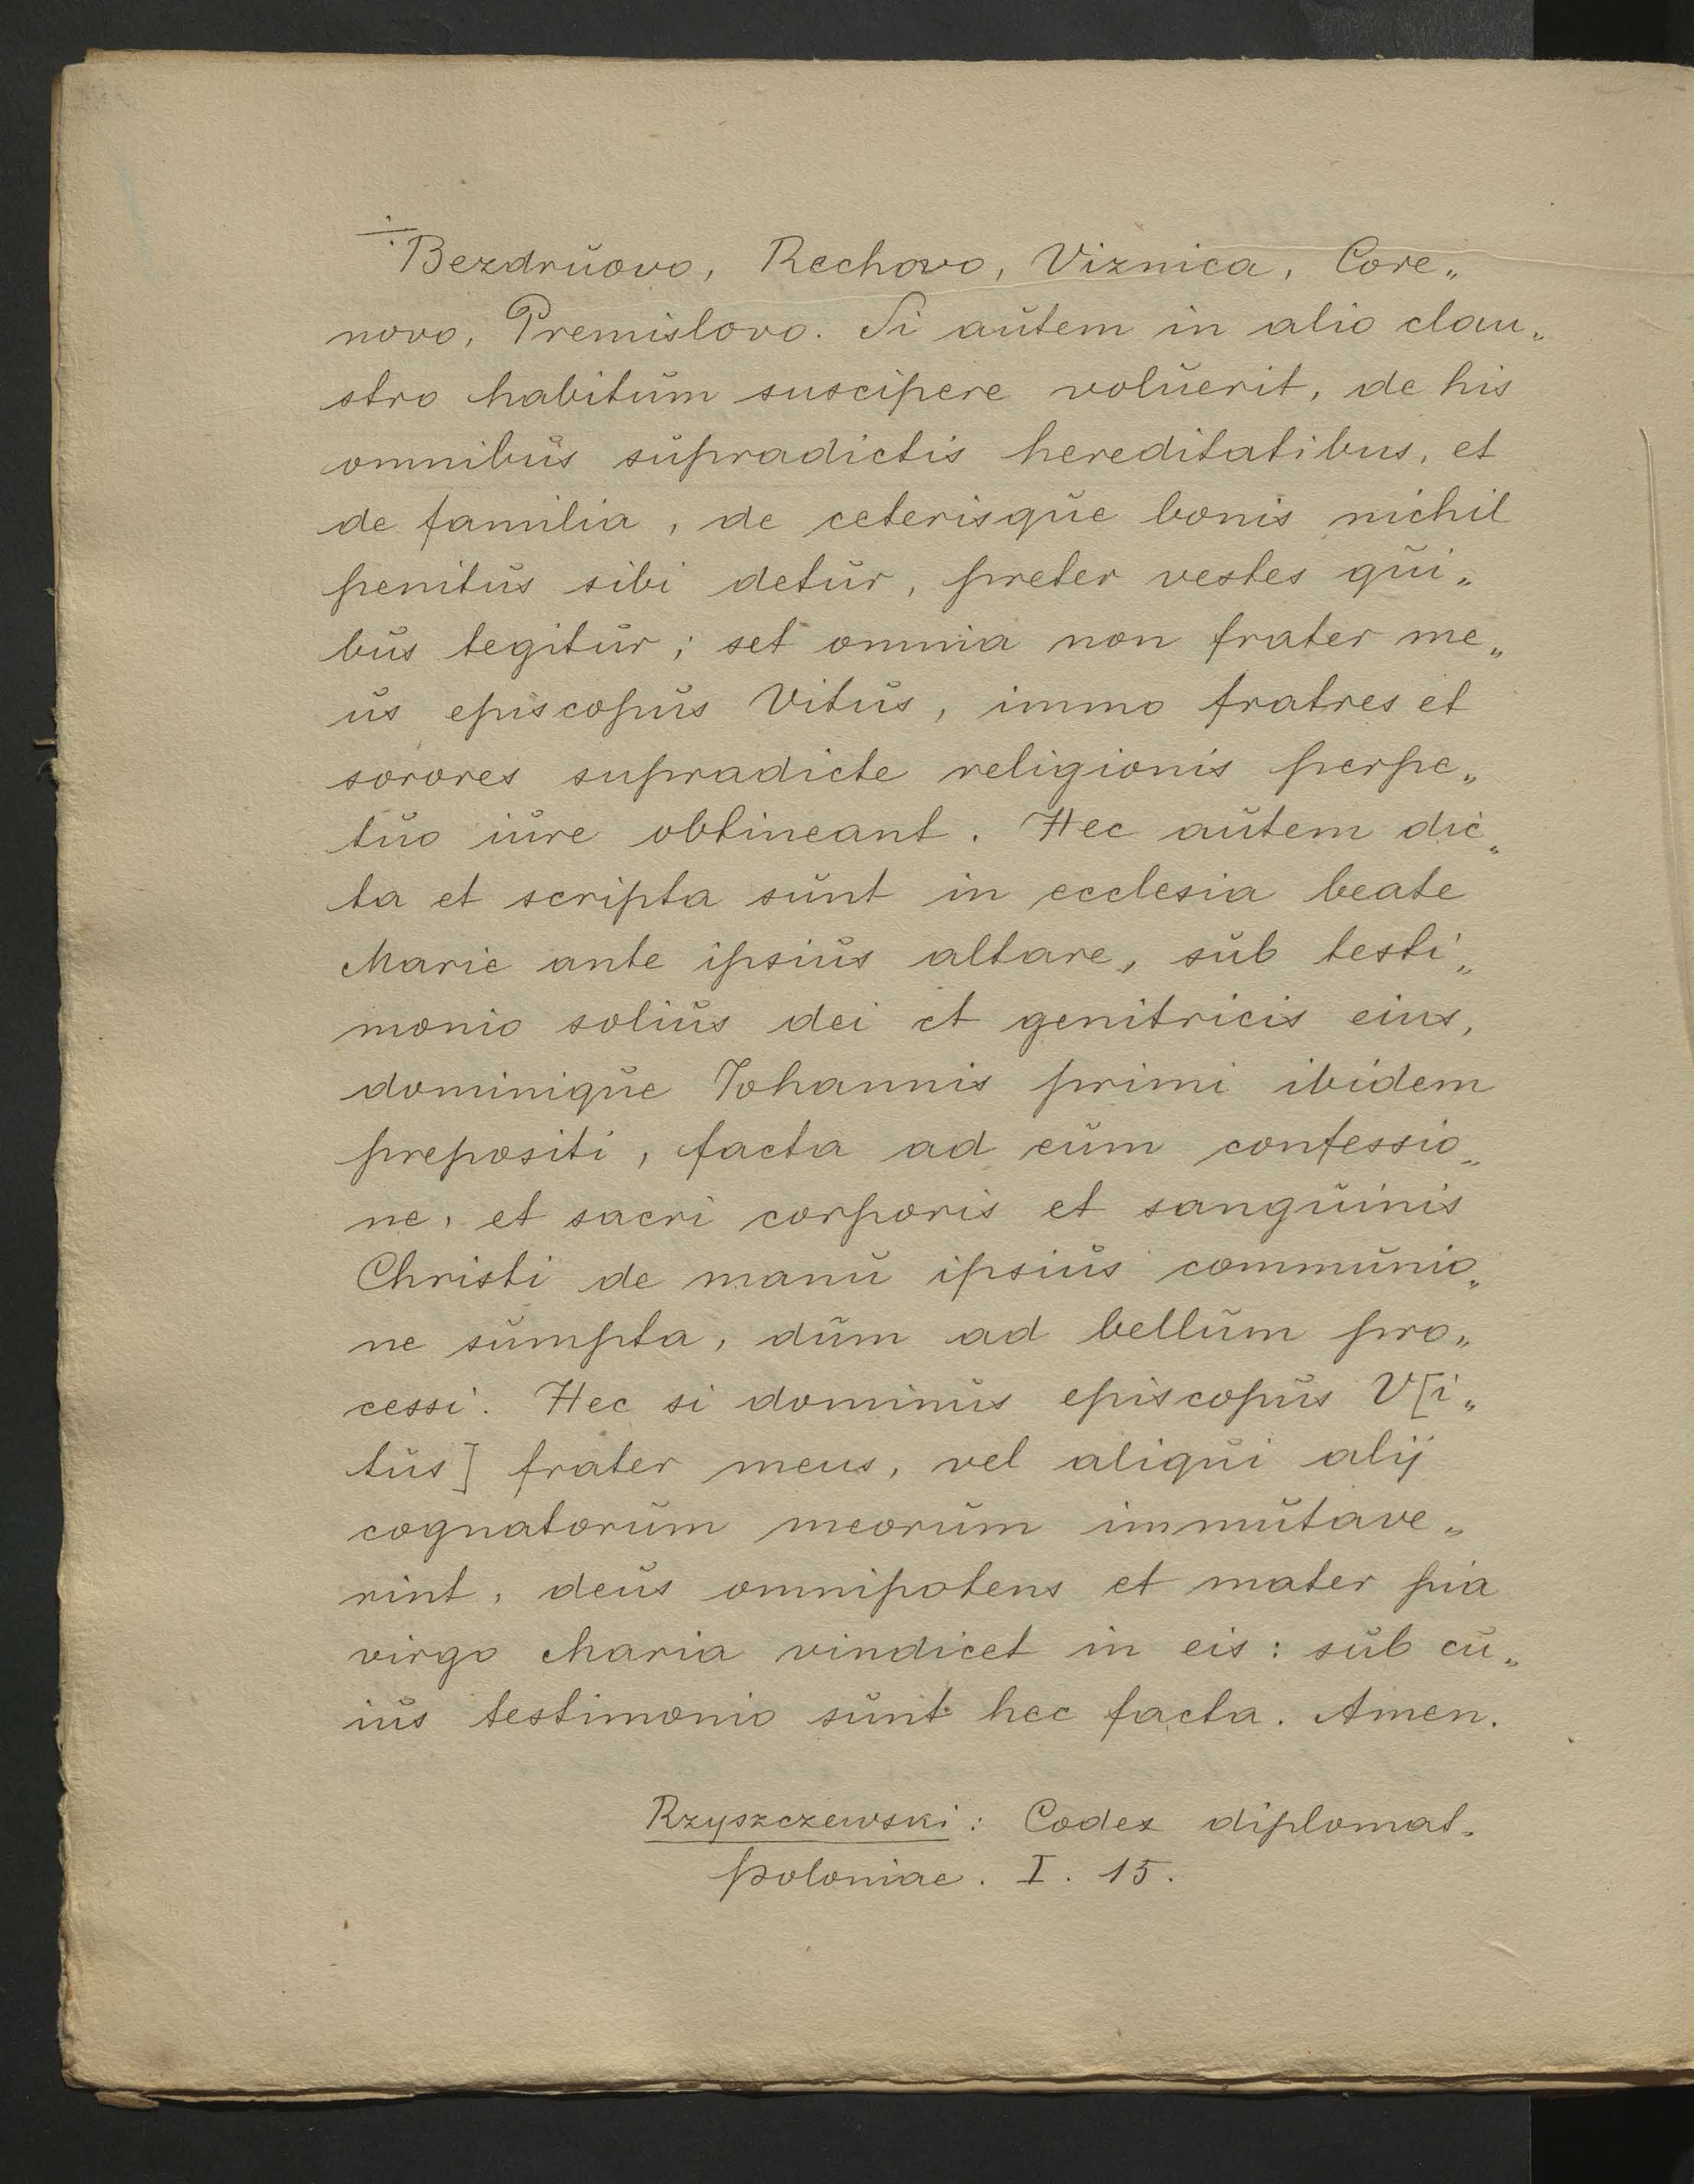 ÷ Bezdruovo, Rechovo, Viznica, Core„
novo, Premislovo. Si autem in alio clau„
stro habitum suscipere voluerit, de his
omnibus supradictis hereditatibus, et
de familia, de ceterisque bonis nichil
penitus sibi detur, preter vestes qui„
bus tegitur; set omnia non frater me„
us episcopus Vitus, immo fratres et
sorores supradicte religionis perpe„
tuo iure obtineant. Hec autem dic„
ta et scripta sunt in ecclesia beate
Marie ante ipsius altare, sub testi„
monio solius dei et genitricis eius,
dominique Iohannis primi ibidem
prepositi, facta ad eum confessio„
ne, et sacri corporis et sanguinis
Christi de manu ipsius communio„
ne sumpta, dum ad bellum pro„
cessi. Hec si dominus episcopus V[i„
tus] frater meus, vel aliqui alij
cognatorum meorum immutave„
rint, deus omnipotens et mater pia
virgo Maria vindicet in eis: sub cu„
ius testimonio sunt hec facta. Amen.
Rzyszczewski: Codex diplomat.
Poloniae. I. 15.